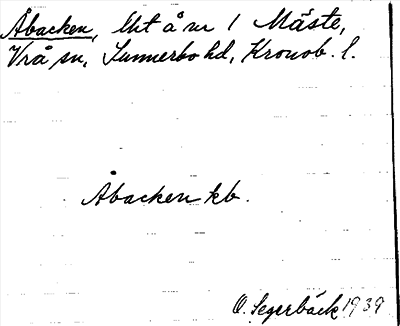 Åbacken, lht å nr 1 Mäste,
Vrå sn, Sunnerbo hd, Kronob. l.
Åbacken kb.
O. Segerbäck 1939